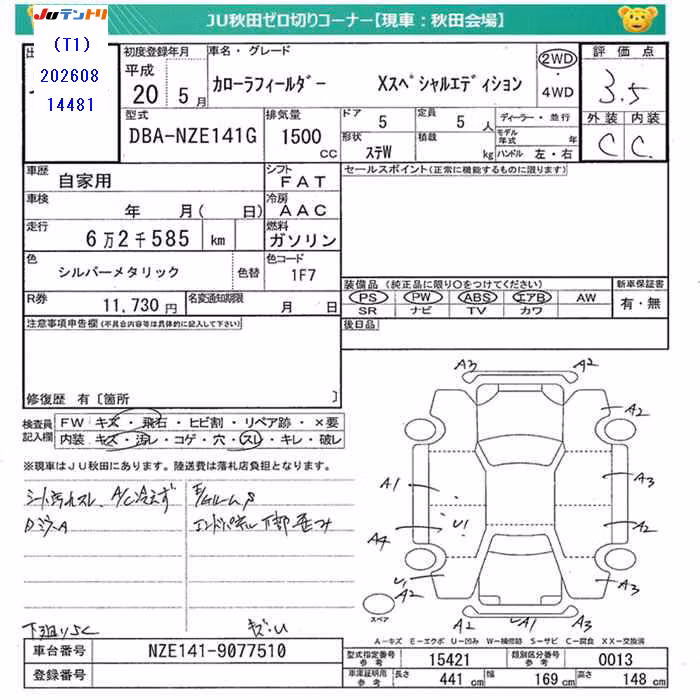 JUテントリ
JU秋田ゼロ切りコーナー【現車：秋田会場】
(T1)
202608
14481
初度登録年月
平成
20 5月
車名・グレード
カローラフィールダー Xスペシャルエディション
2WD
・
4WD
評価点
3.5
外装 内装
C C
型式
DBA-NZE141G
排気量
1500
CC
ドア 5
定員 5 人
形状 ステW
積載 kg
ディーラー・並行
モデル年式 年
ハンドル 左・右
車歴
自家用
シフト
FAT
車検
年 月( 日)
冷房
AAC
走行
6万2千585 km
燃料
ガソリン
色
シルバーメタリック
色替
色コード
1F7
R券
11,730 円
名変通知期限
月 日
セールスポイント(正常に機能するものに限ります)
装備品 (純正品に限り○をつけてください)
PS PW ABS エアB AW
SR ナビ TV カワ
新車保証書
有・無
後日品
注意事項申告欄(不具合内容等は具体的に記入して下さい)
修復歴 有〔箇所 〕
検査員
記入欄
FW キズ・飛石・ヒビ割・リペア跡・×要
内装 キズ・汚レ・コゲ・穴・スレ・キレ・破レ
※現車はJU秋田にあります。陸送費は落札店負担となります。
シート汚れスレ、A/C冷えず
DミラーA
エンドパネル下部歪み
下廻りSC
キズ・U
A3 A2
A2
A1
A3
U1
A2
A4
U1
A2
A3
A2 A1
スペア
A−キズ E−エクボ U−凹み W−補修跡 S−サビ C−腐食 XX−交換済
車台番号
NZE141-9077510
登録番号
型式指定番号
参考
15421
類別区分番号
参考
0013
車庫証明用
参考
長さ 441 cm
幅 169 cm
高さ 148 cm